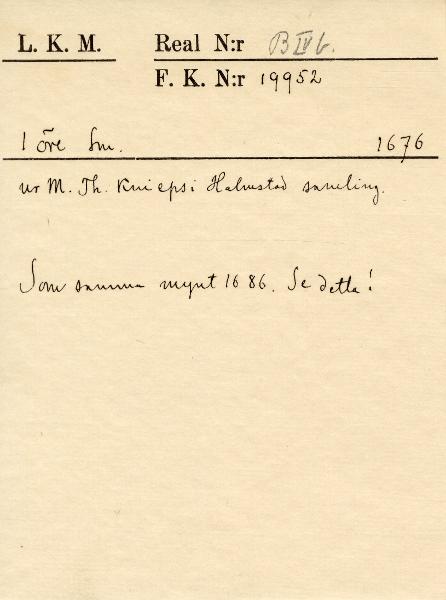 L. K. M. Real N:r B IV b.
F. K. N:r 19952
1 öre Sm. 1676
ur M. Th. Kniepsi Halmstad samling.
Som samma mynt 1686. Se detta!